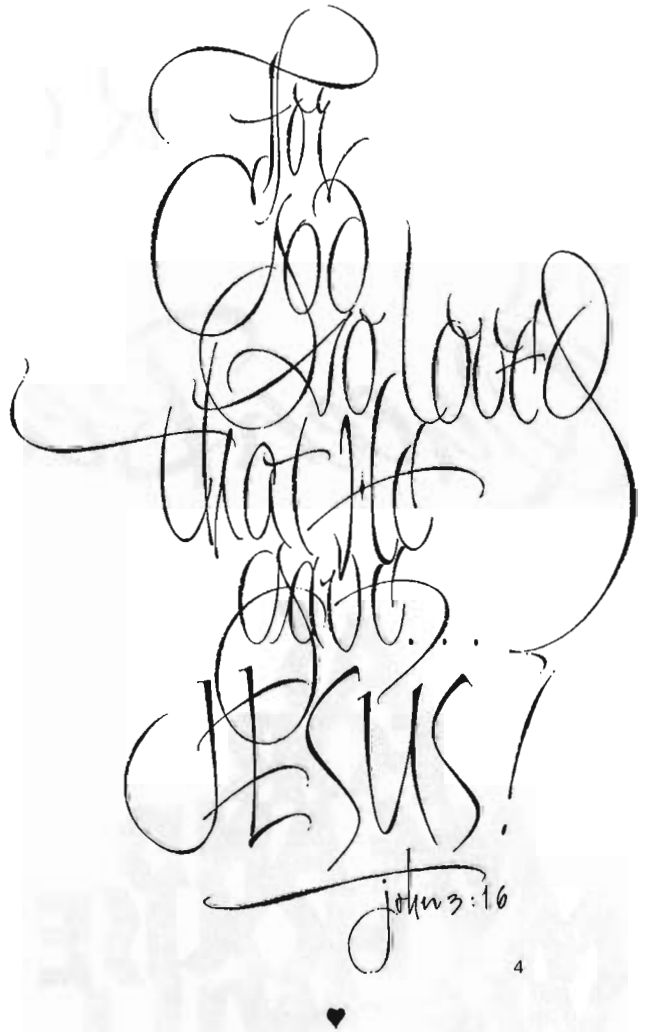 For
God
so loved
that He
gave...
JESUS!
john 3:16
4